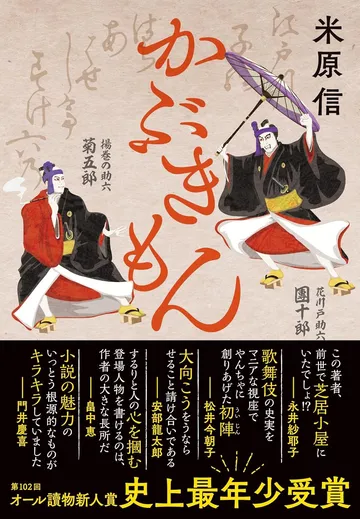 米原信
かぶきもん
揚巻の助六
菊五郎
花川戸助六
團十郎
この著者、
前世で芝居小屋に
いたでしょ!?
——永井紗耶子
歌舞伎の史実を
マニアな視座で
やんちゃに
創りあげた初陣
——松井今朝子
大向こうをうなら
せること請け合いである
——安部龍太郎
するりと人の心を掴む
登場人物を書けるのは、
作者の大きな長所だ
——畠中恵
小説の魅力の
いっとう根源的なものが
キラキラしていました
——門井慶喜
第102回
オール讀物新人賞
史上最年少受賞